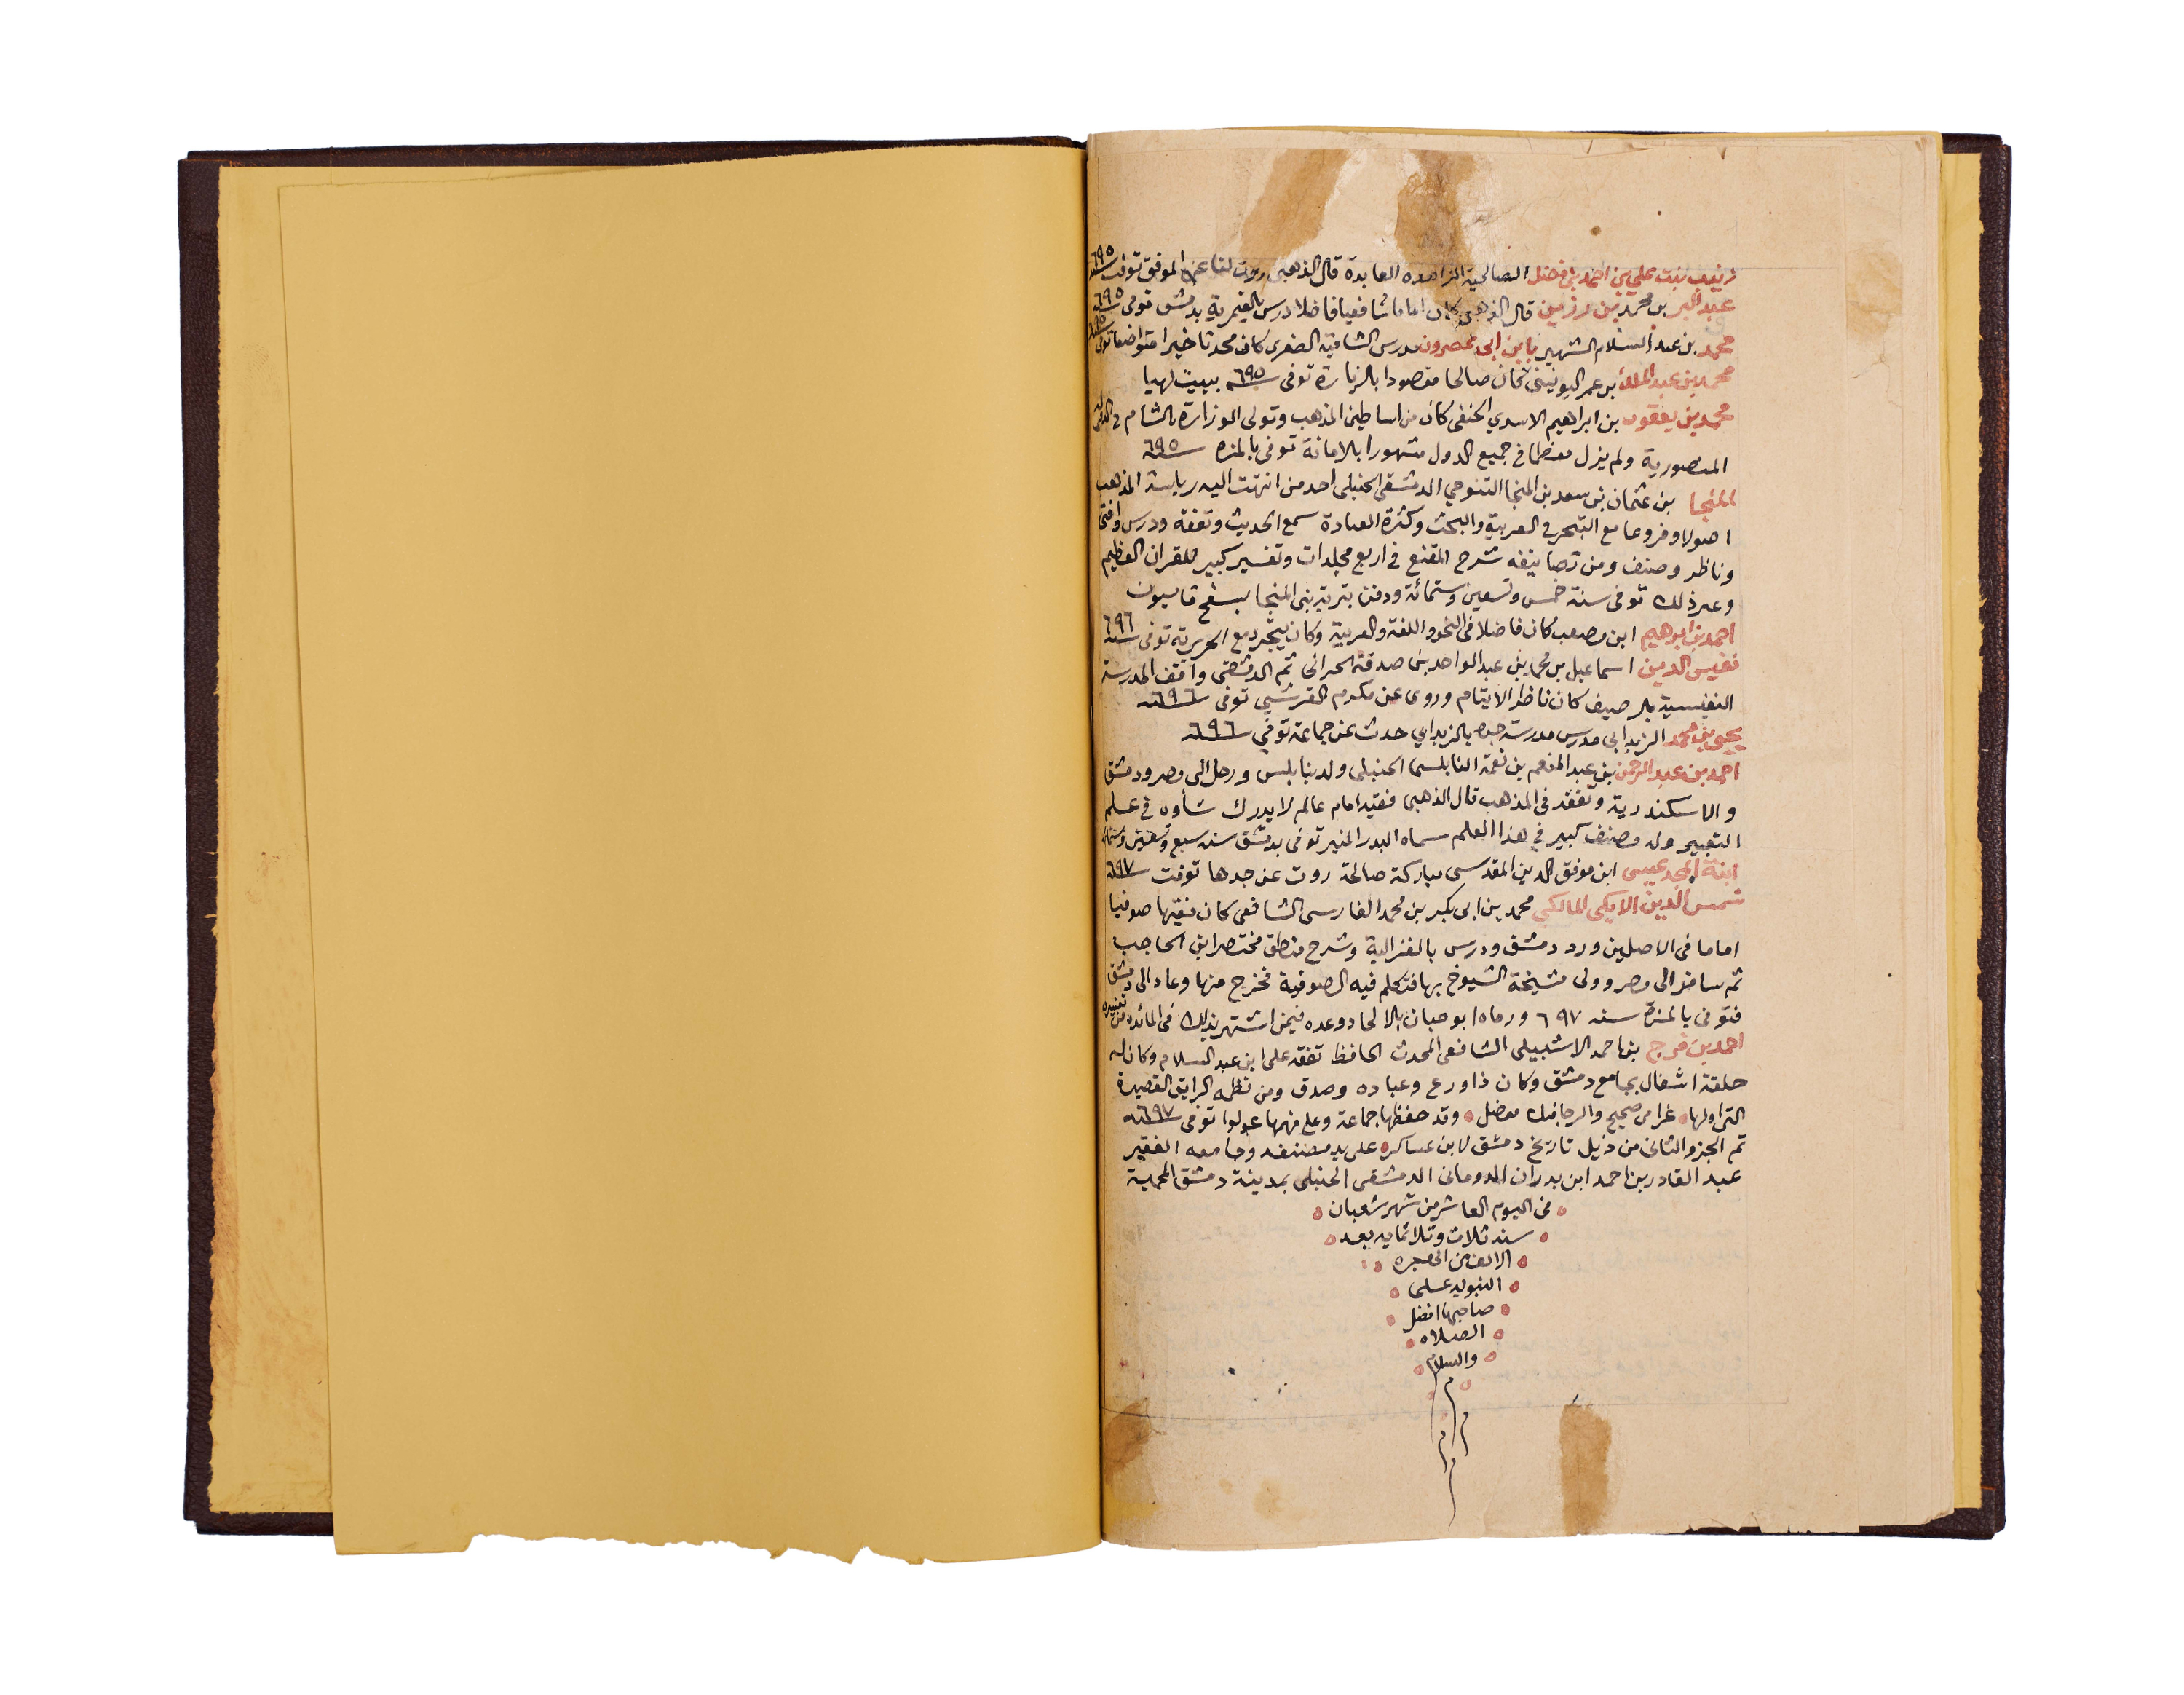 زينب بنت علي بن احمد بن فضل الصالحية الزاهده العابدة قال الذهبي روت لنا عن الموفق توفت سنة ٦٩٥
عبد البر بن محمد بن رزين قال الذهبي كان اماما شافعيا فاضلا درس بالقيمرية بدمشق توفى سنة ٦٩٥
محمد بن عبد السلام الشهير بابن ابى عصرون مدرس الشامية الصغرى كان محدثا خيرا متواضعا توفى سنة ٦٩٥
محمد بن عبد الملك بن عمر اليونيني كان صالحا مقصودا بالزيارة توفى سنة ٦٩٥ ببيت لهيا
محمد بن يعقوب بن ابراهيم الاسدي الحنفى كان من اساطين المذهب وتولى الوزارة بالشام في الدولة
المنصورية ولم يزل معظما في جميع الدول مشهورا بالامانة توفى بالمزه سنة ٦٩٥
المنجا بن عثمان بن سعد بن المنجا التنوخي الدمشقي الحنبلى احد من انتهت اليه رياسة المذهب
اصولا وفروعا مع التبحر في العربية والبحث وكثرة العبادة سمع الحديث وتفقه ودرس وافتى
وناظر وصنف ومن تصانيفه شرح المقنع في اربع مجلدات وتفسير كبير للقران العظيم
وغير ذلك توفى سنة خمس وتسعين وستمائة ودفن بتربة بنى المنجا بسفح قاسيون
احمد بن ابرهيم ابن مصعب كان فاضلا فى النحو واللغة والعربية وكان يتجرد مع الحريرية توفى سنة ٦٩٦
نفيس الدين اسماعيل بن محمد بن عبد الواحد بن صدقة الحرانى ثم الدمشقي واقف المدرسة
النفيسية بالرصيف كان ناظر الايتام وروى عن مكرم القرشي توفى سنة ٦٩٦
يحيى بن محمد الزبداني مدرس مدرسة جده بالزبداني حدث عن جماعة توفي سنة ٦٩٦
احمد بن عبد الرحمن بن عبد المنعم بن نعمة النابلسى الحنبلى ولد بنابلس ورحل الى مصر ودمشق
والاسكندرية وتفقه فى المذهب قال الذهبى فقيه امام عالم لا يدرك شأوه في علم
التعبير وله مصنف كبير في هذا العلم سماه البدر المنير توفى بدمشق سنه سبع وتسعين وستمائة
ابنة المجد عيسى ابن موفق الدين المقدسى مباركة صالحة روت عن جدها توفت سنة ٦٩٧
شمس الدين الايكي المالكي محمد بن ابى بكر بن محمد الفارسى الشافعى كان فقيها صوفيا
اماما فى الاصلين ورد دمشق ودرس بالغزالية وشرح منطق مختصر ابن الحاجب
ثم سافر الى مصر وولى مشيخة الشيوخ بها فتكلم فيه الصوفية فخرج منها وعاد الى دمشق
فتوفى بالمزة سنه ٦٩٧ ورماه ابو حيان بالالحاد وعده فيمن اشتهر بذلك فى المائده من تفسيره
احمد بن فرج بن احمد الاشبيلى الشافعى المحدث الحافظ تفقه على ابن عبد السلام وكان له
حلقة اشغال بجامع دمشق وكان ذا ورع وعباده وصدق ومن نظمه الرايق القصيدة
التى اولها غرامى صحيح والرجا فيك معضل وقد حفظها جماعة وعلى فهمها عولوا توفى سنة ٦٩٧
تم الجزو الثانى من ذيل تاريخ دمشق لابن عساكر على يد مصنفه وجامعه الفقير
عبد القادر بن احمد ابن بدران الدومانى الدمشقى الحنبلى بمدينة دمشق المحمية
فى اليوم العاشر من شهر شعبان
سنه ثلاث وثلاثمايه بعد
الالف من الهجره
النبويه على
صاحبها افضل
الصلاه
والسلام
م
م م
م